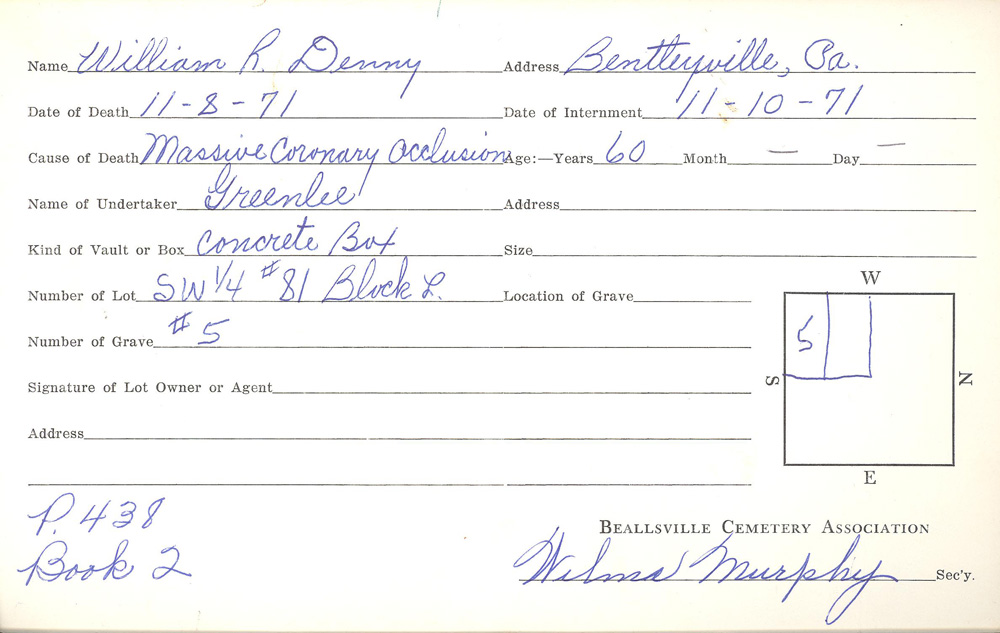 Name William R. Denny Address Bentleyville, Pa.
Date of Death 11-8-71 Date of Internment 11-10-71
Cause of Death Massive Coronary Occlusion Age:—Years 60 Month — Day —
Name of Undertaker Greenlee Address
Kind of Vault or Box Concrete Box Size
Number of Lot SW 1/4 #81 Block L. Location of Grave
Number of Grave #5
Signature of Lot Owner or Agent
Address
W
5
S N
E
P. 438
Book 2
BEALLSVILLE CEMETERY ASSOCIATION
Wilma Murphy Sec'y.